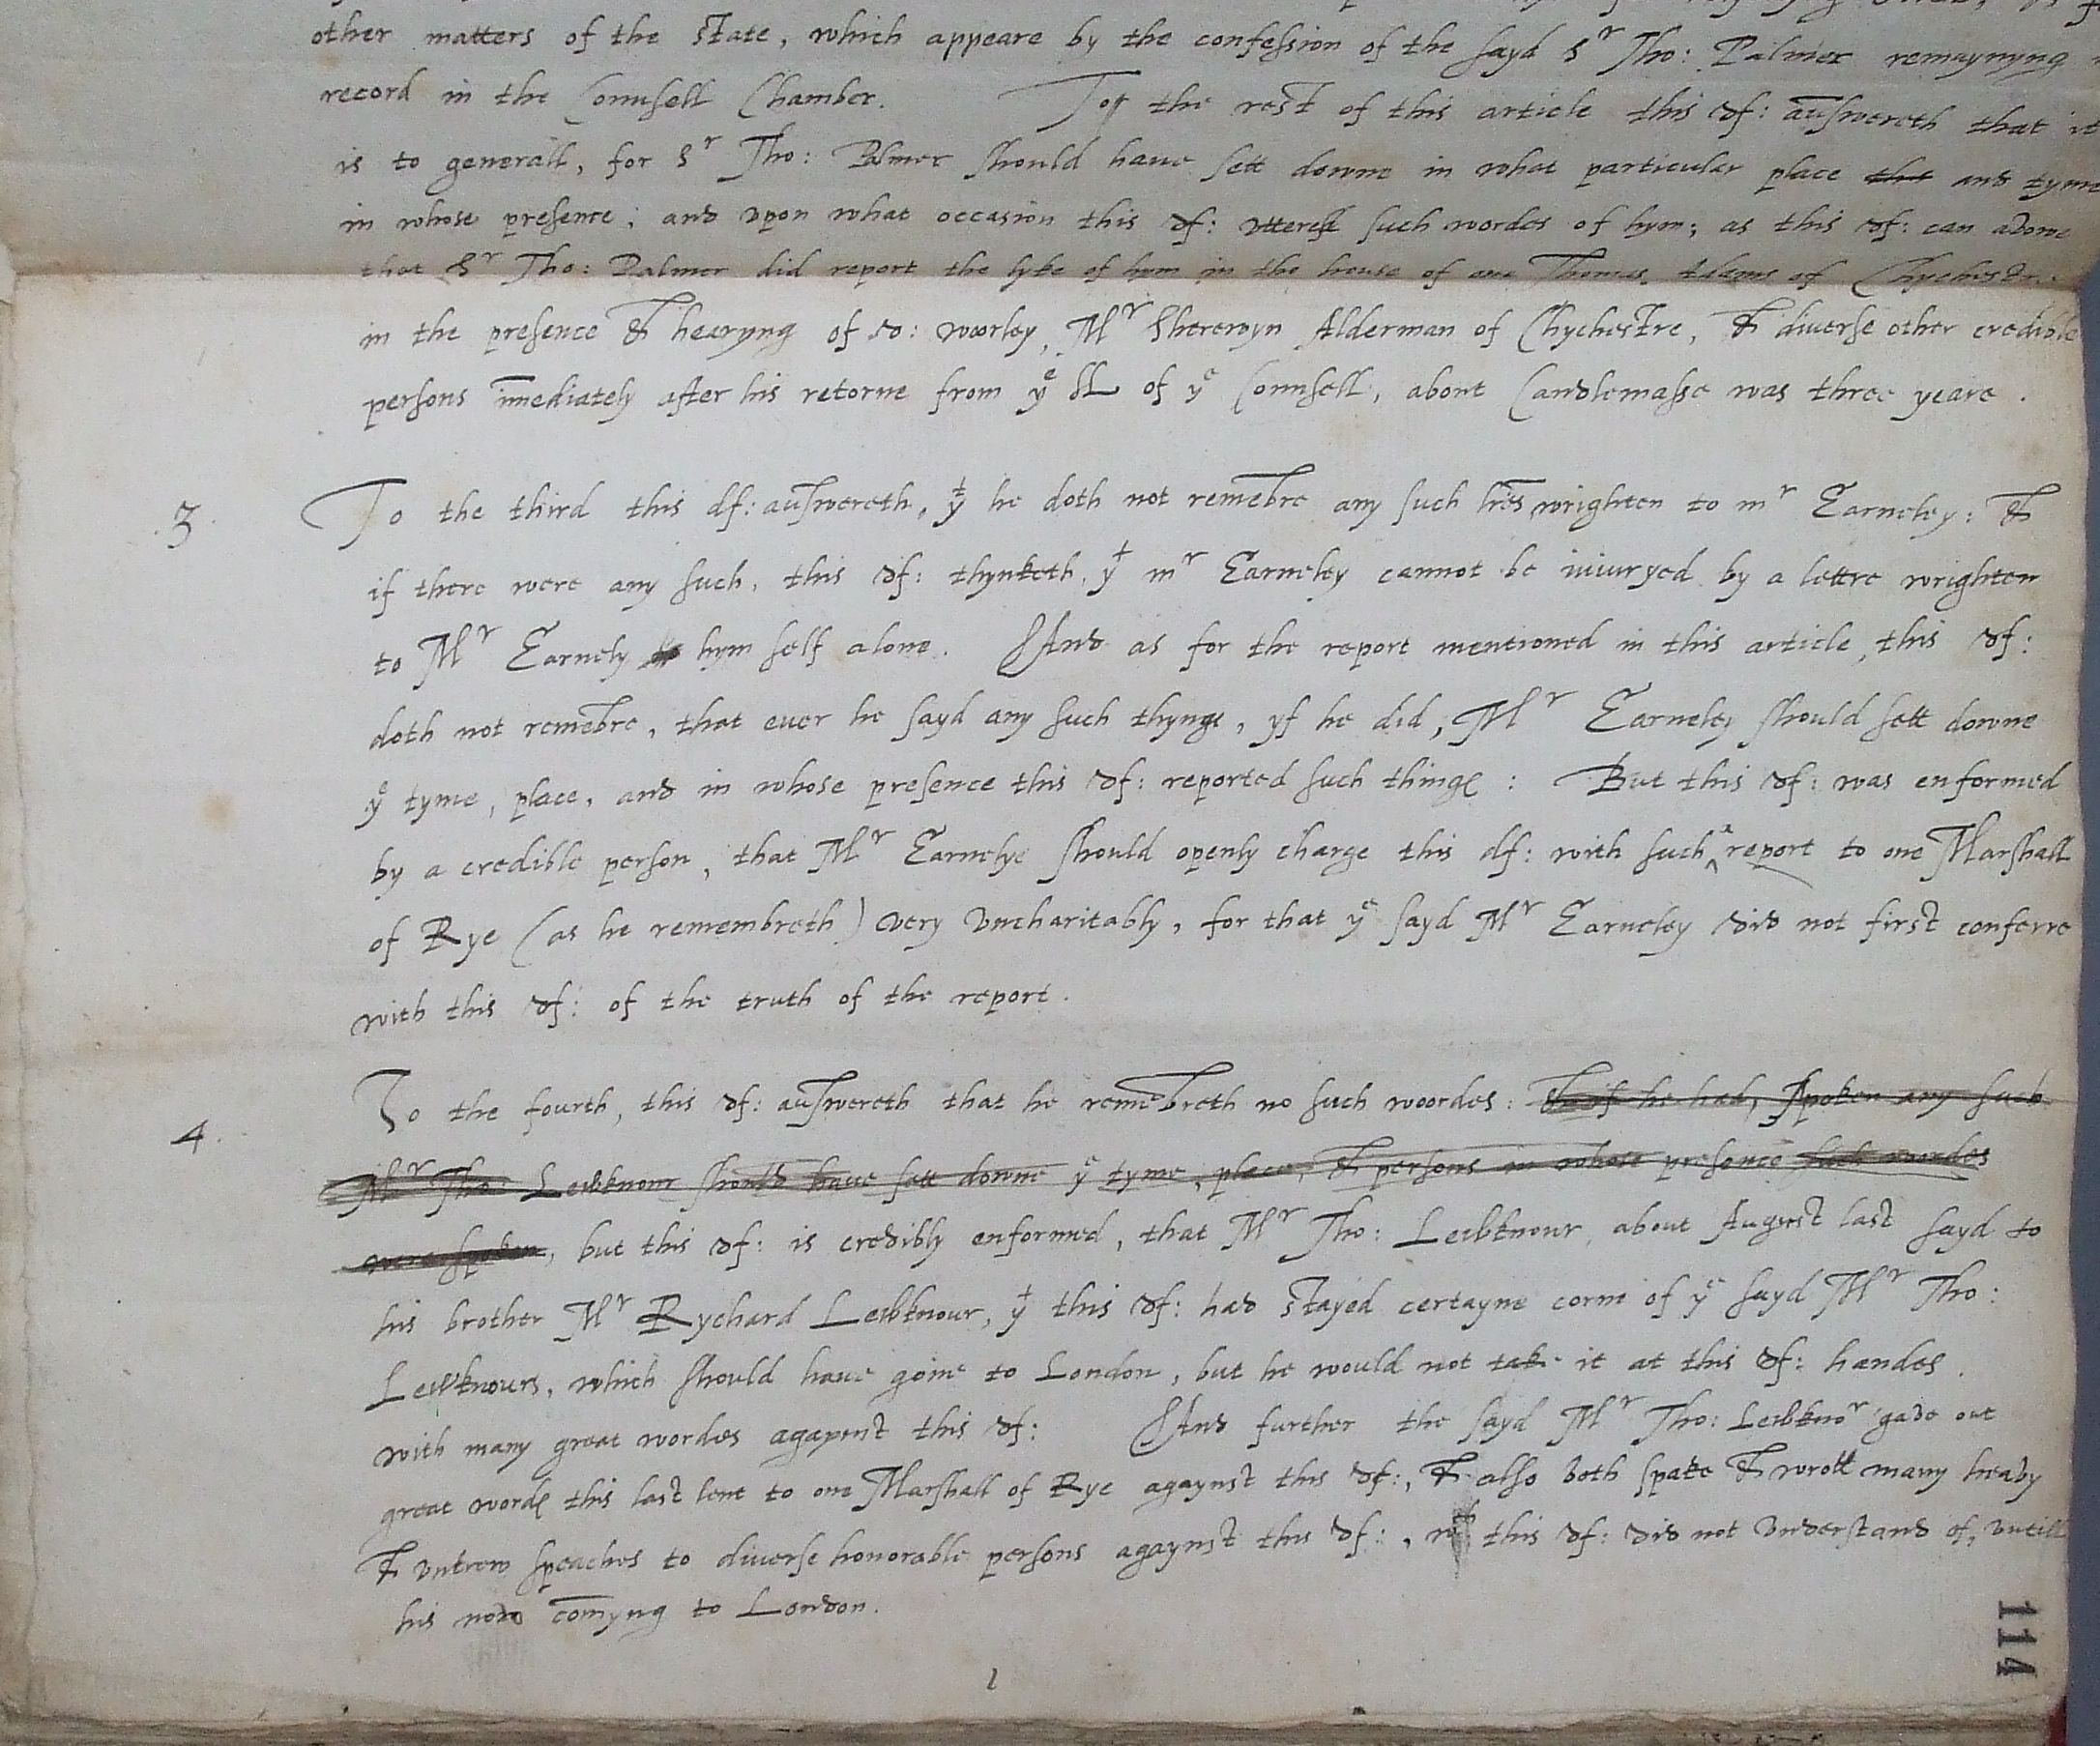 other matters of the State, which appeare by the confession of the sayd Sr Tho: Palmer remaynyng
record in the Counsell Chamber. To the rest of this article this df: auswereth that it
is to generall, for Sr Tho: Palmer should haue sett downe in what particular place the and tyme
in whose presence; and vpon what occasion this df: vttered such wordes of hym; as this df: can avowe
that Sr Tho: Palmer did report the lyke of hym in the house of one Thomas Adams of Chychestre
in the presence & hearyng of Jo: Worley, Mr Sherewyn Alderman of Chychestre, & diuerse other credible
persons imediately after his retorne from ye LL of ye Counsell, about Candlemasse was three yeare.
3. To the third this df: answereth, yt he doth not remebre any such lres wrighten to mr Earneley: &
if there were any such, this df: thynketh yt mr Earneley cannot be iniuryed by a lettre wrighten
to Mr Earnely hym self alone. And as for the report mentioned in this article, this df:
doth not remebre, that euer he sayd any such thynge, yf he did, Mr Earneley should sett downe
ye tyme, place, and in whose presence this df: reported such thinges: But this df: was enformed
by a credible person, that Mr Earnelye should openly charge this df: with such a report to one Marshall
of Rye (as he remembreth) very vncharitably, for that ye sayd Mr Earneley did not first conferre
with this df: of the truth of the report.
4. To the fourth, this df: answereth that he remebreth no such woordes: & if he had, spoken any such
Mr Tho: Lewknour should haue sett downe ye tyme, place, & persons in whose presence such woordes
were spoken, but this df: is credibly enformed, that Mr Tho: Lewknour, about August last sayd to
his brother Mr Rychard Lewknour, yt this df: had stayed certayne corne of ye sayd Mr Tho:
Lewknours, which should haue goine to London, but he would not take it at this df: handes.
with many great wordes agaynst this df: And further the sayd Mr Tho: Lewknor gave out
great wordes this last lent to one Marshall of Rye agaynst this df:, & also both spake & wrott many heavy
& vntrew speaches to diuerse honorable persons agaynst this df:, wch this df: did not vnderstand of, vntill
his now comyng to London.
114